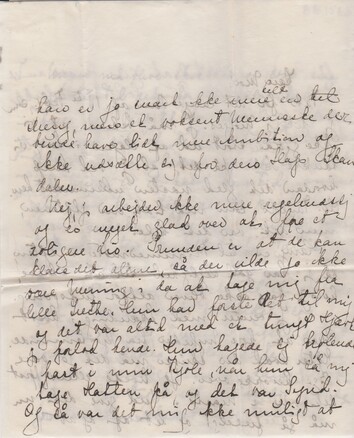 han er jo snart ikke mere
en hel
Dreng, men et voksent Menneske der
burde have lidt mere Ambition og
ikke udsætte sig for den Slags Skan
daler.
Nej, jeg arbejder ikke mere regelmæssig
og er meget glad over at få et
roligere Liv. Grunden er at de kan
klare det alene, så der vilde jo ikke
være Mening i da at tage mig fra
lille Grethe. Hun har først det til mig
og det var altid med et tungt Hjerte
jeg forlod hende. Hun hagede sig
fast i min Kjole, når hun så mig
tage Hatten på og det var Synd.
Og så var det mig ikke muligt at